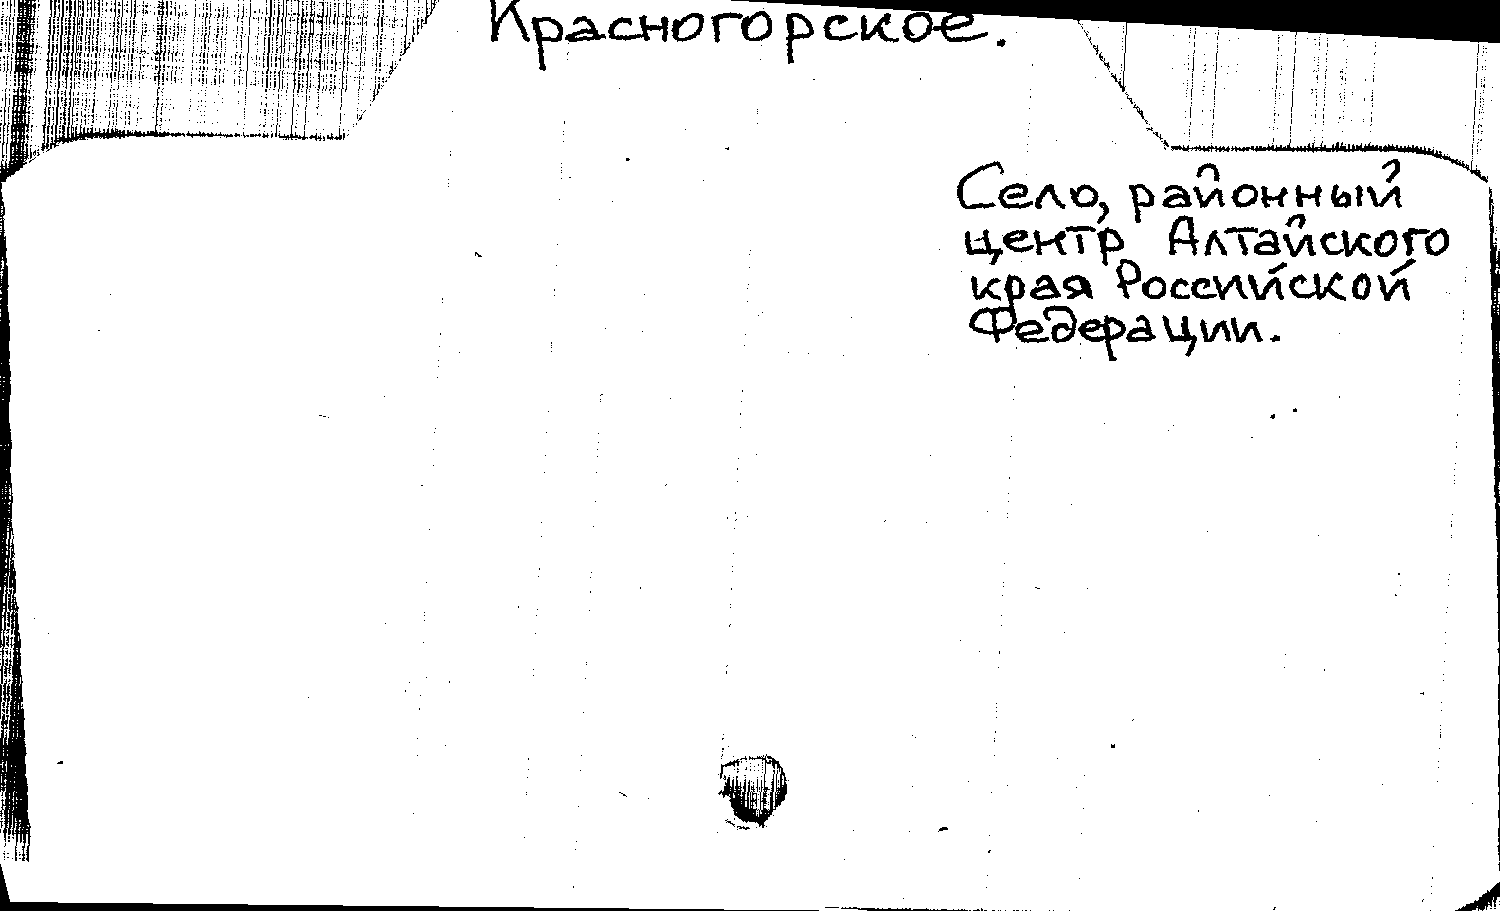 Красногорское.
Село, районный
центр Алтайского
края Российской
Федерации.